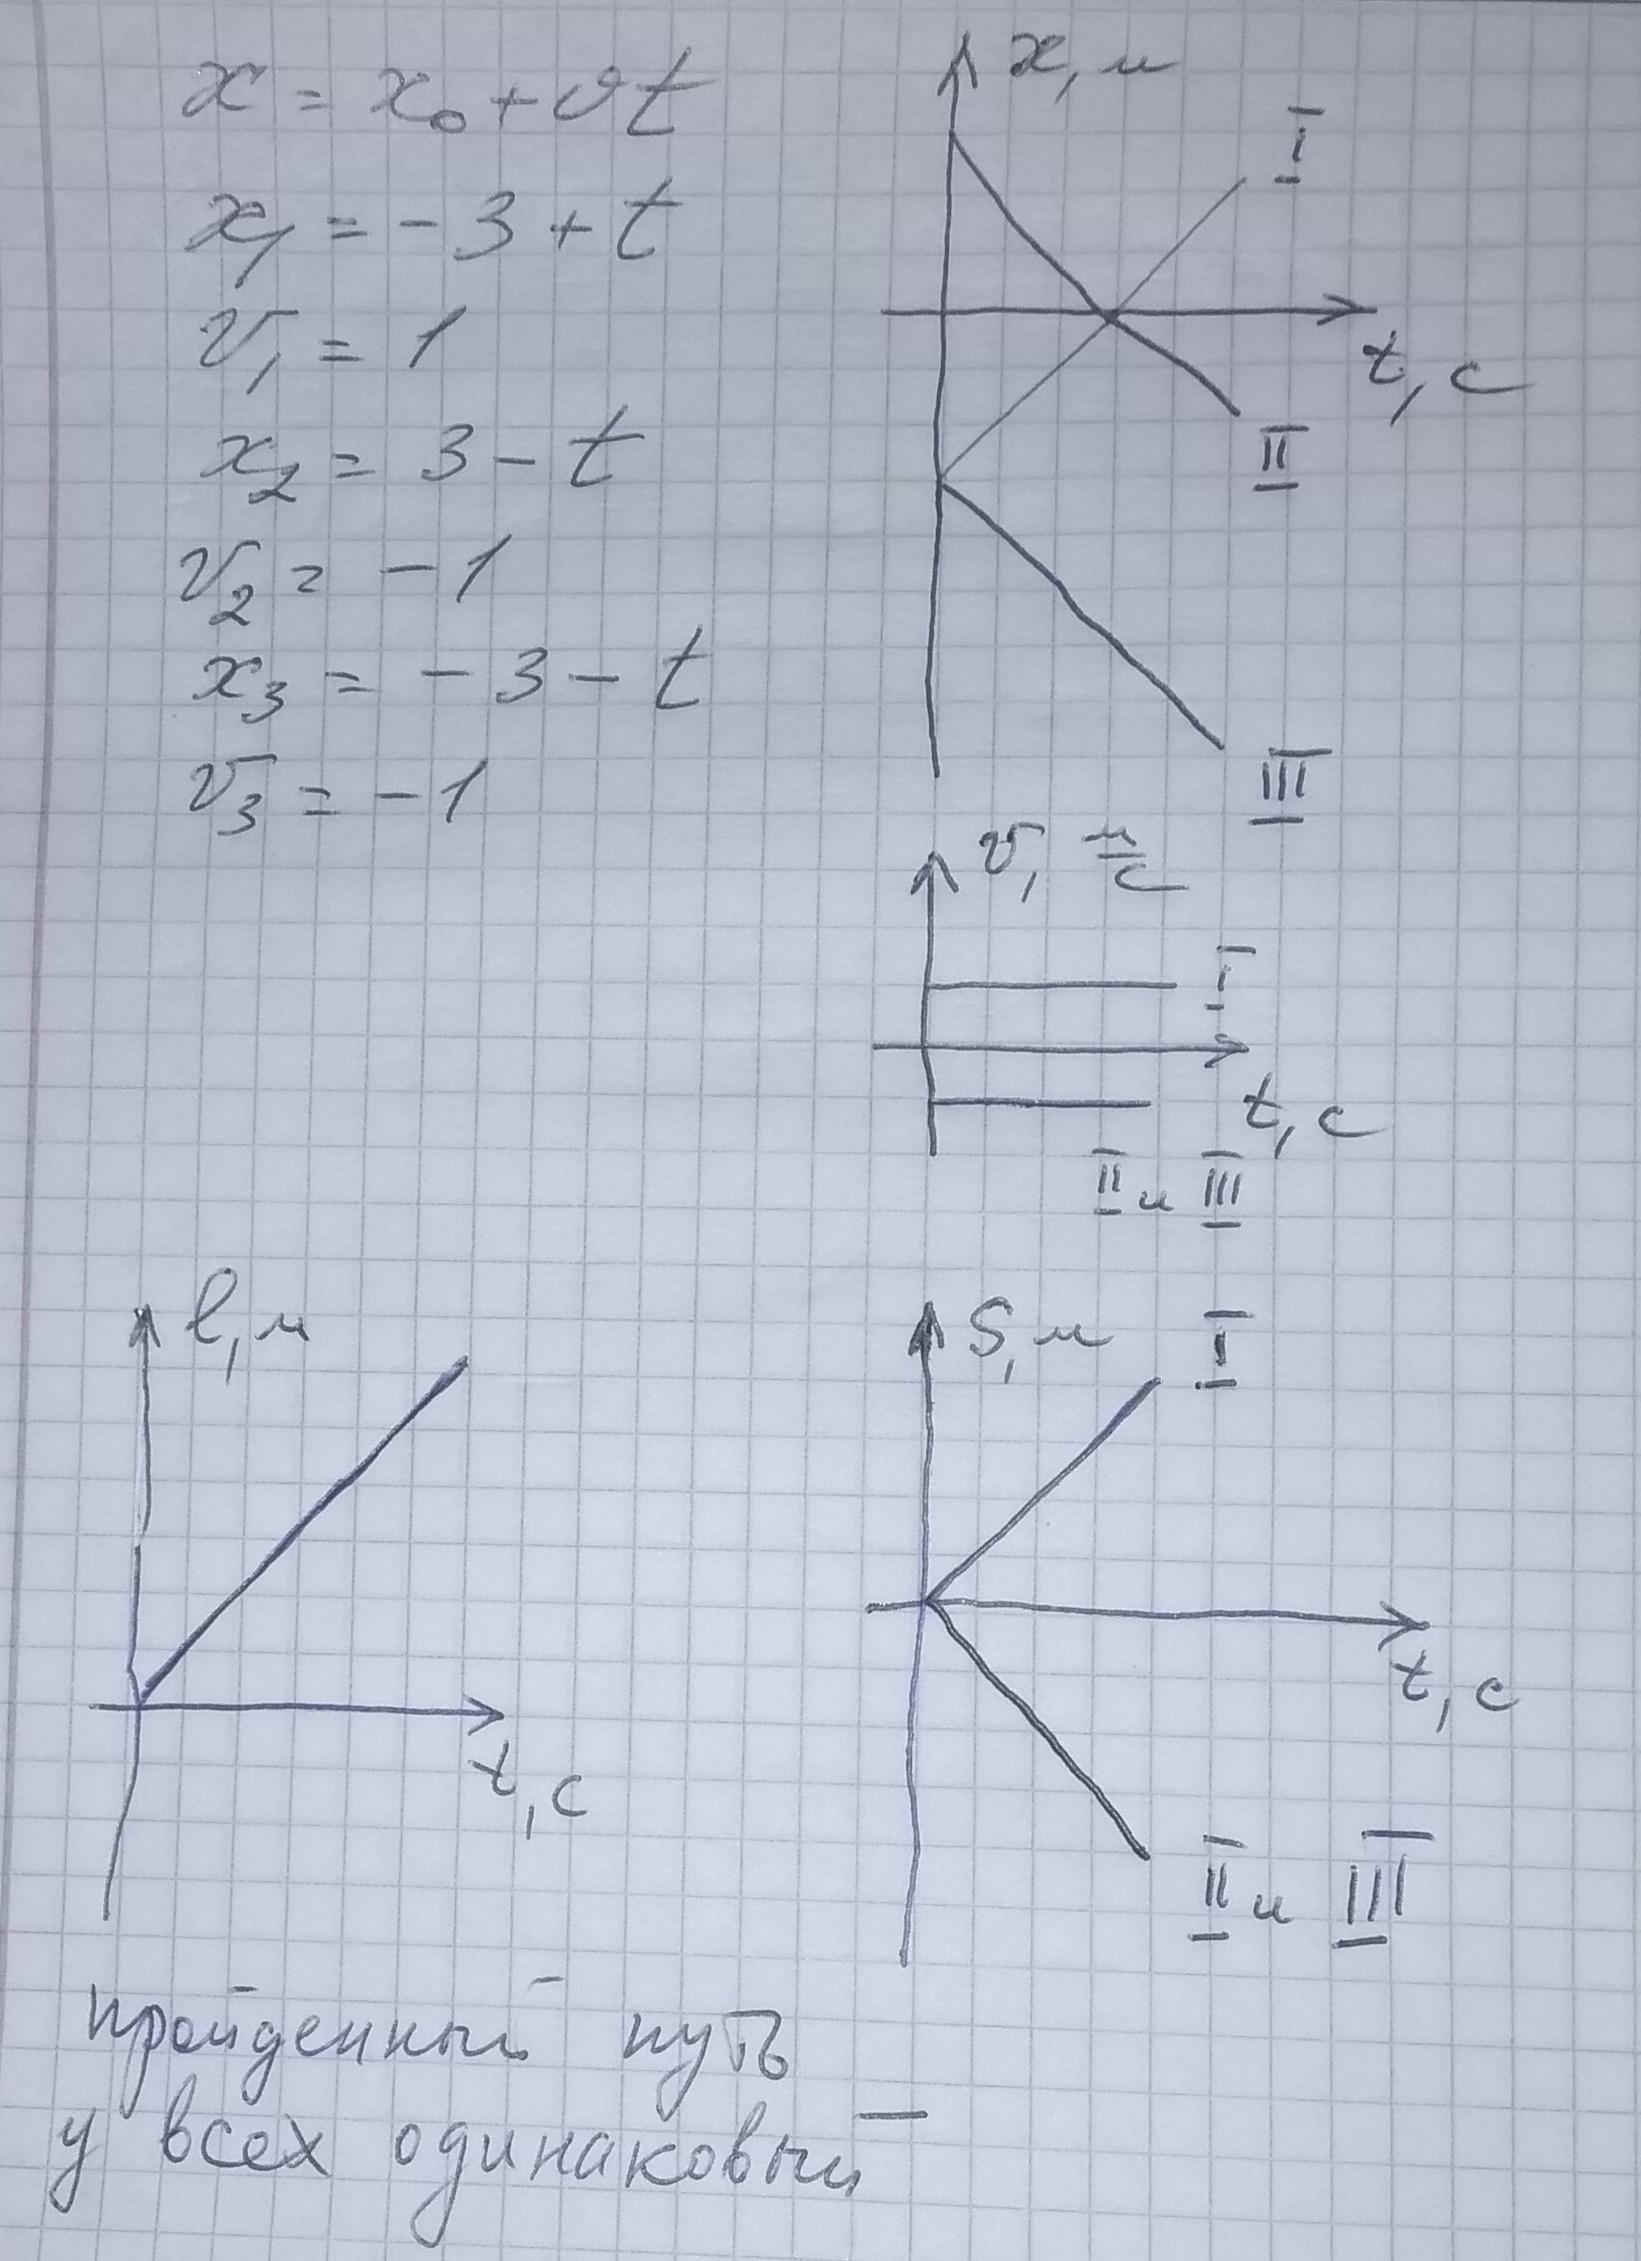 x = x₀ + vt
x₁ = -3 + t
v₁ = 1
x₂ = 3 - t
v₂ = -1
x₃ = -3 - t
v₃ = -1
x, м
I
t, c
II
III
v, м/c
I
t, c
II и III
l, м
t, c
S, м
I
t, c
II и III
пройденный путь
у всех одинаковый